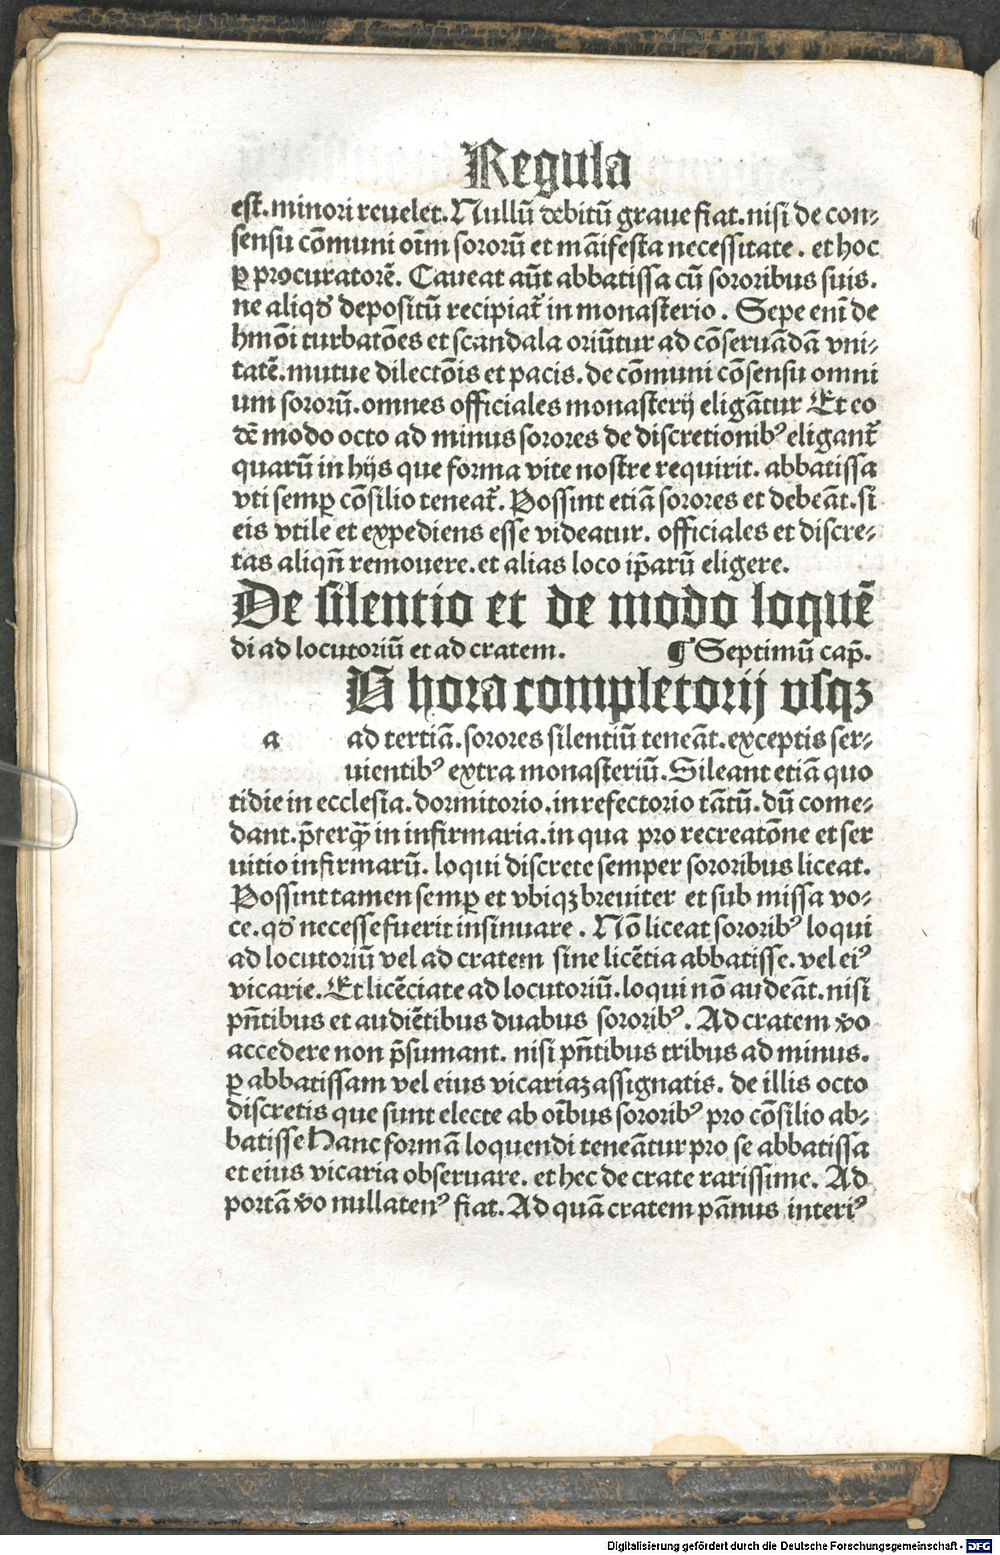 Regula
est. minori reuelet. Nullū debitū graue fiat. nisi de con⸗
sensu cōmuni oīm sororū et māifesta necessitate. et hoc
ꝑ procuratorē. Caueat aūt abbatissa cū sororibus suis.
ne aliqđ depositū recipiat᷑ in monasterio. Sepe enī de
hmōi turbatōes et scandala oriūtur ad cōseruādā vni⸗
tatē. mutue dilectōis et pacis. de cōmuni cōsensu omni
um sororū. omnes officiales monasterij eligātur Et eo
dē modo octo ad minus sorores de discretionibꝰ eligant᷑
quarū in hijs que forma vite nostre requirit. abbatissa
vti semꝑ cōsilio teneat᷑. Possint etiā sorores et debeāt. si
eis vtile et expediens esse videatur. officiales et discre⸗
tas aliqn̄ remouere. et alias loco ip̄arū eligere.
De silentio et de modo loquē
di ad locutoriū et ad cratem. ¶ Septimū cap̄.
B hora completorij vsqꝫ
a ad tertiā. sorores silentiū teneāt. exceptis ser⸗
uientibꝰ extra monasteriū. Sileant etiā quo
tidie in ecclesia. dormitorio. in refectorio tātū. dū come⸗
dant. p̄terꝙ̄ in infirmaria. in qua pro recreatōne et ser
uitio infirmarū. loqui discrete semper sororibus liceat.
Possint tamen semꝑ et vbiqꝫ breuiter et sub missa vo⸗
ce. qđ necesse fuerit insinuare. Nō liceat sororibꝰ loqui
ad locutoriū vel ad cratem sine licētia abbatisse. vel eiꝰ
vicarie. Et licēciate ad locutoriū. loqui nō audeāt. nisi
pn̄tibus et audiētibus duabus sororibꝰ. Ad cratem v̄o
accedere non p̄sumant. nisi pn̄tibus tribus ad minus.
ꝑ abbatissam vel eius vicariaꝫ assignatis. de illis octo
discretis que sunt electe ab oībus sororibꝰ pro cōsilio ab⸗
batisse Hanc formā loquendi teneātur pro se abbatissa
et eius vicaria obseruare. et hec de crate rarissime. Ad
portā v̄o nullatenꝰ fiat. Ad quā cratem pānus interiꝰ
Digitalisierung gefördert durch die Deutsche Forschungsgemeinschaft - DFG